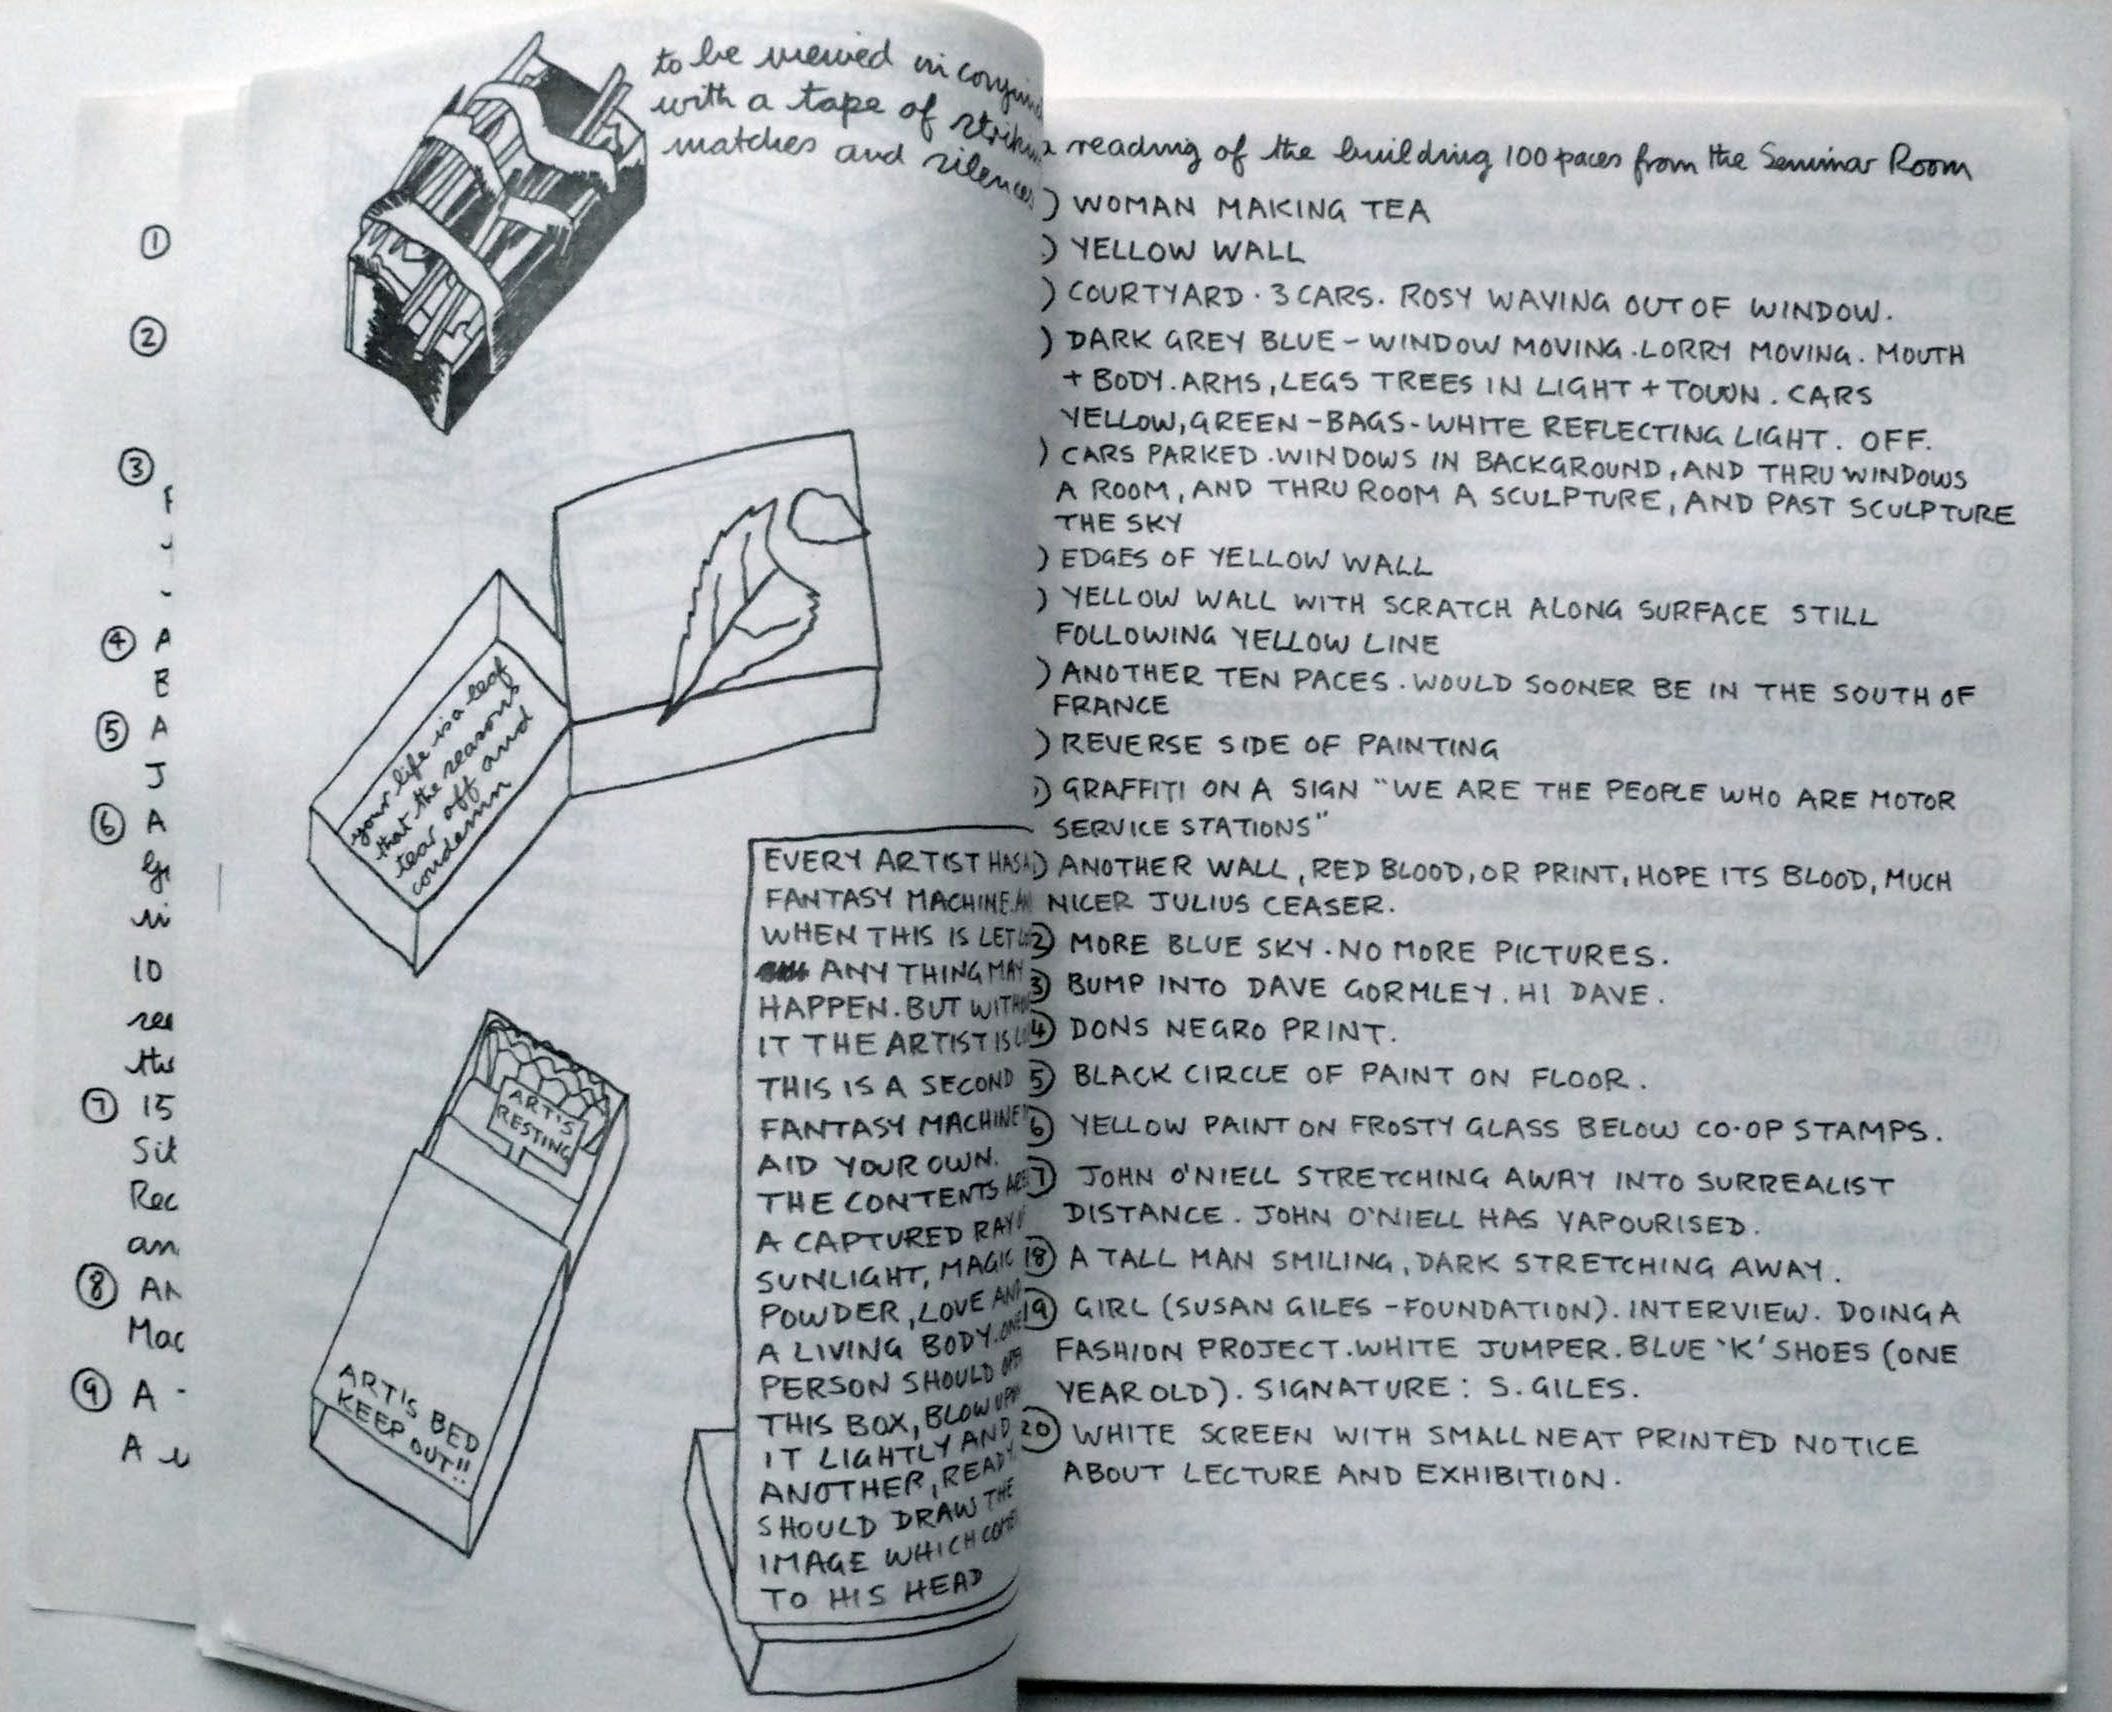 ①
②
③
④ A
B
⑤ A
J
⑥ A
10
⑦ 15
Sit
Rec
an
⑧ AN
Mac
⑨ A -
A
to be viewed in
with a tape of
matches and silences
your life is a leaf
that the seasons
tear off and
condemn
ART'S
RESTING
ART'S BED
KEEP OUT!!
EVERY ARTIST HAS A
FANTASY MACHINE.
WHEN THIS IS LET
ANYTHING MAY
HAPPEN. BUT
IT THE ARTIST IS
THIS IS A SECOND
FANTASY MACHINE
AID YOUR OWN.
THE CONTENTS ARE
A CAPTURED RAY
SUNLIGHT, MAGIC
POWDER, LOVE AND
A LIVING BODY. ONE
PERSON SHOULD OPEN
THIS BOX, BLOW UPON
IT LIGHTLY AND
ANOTHER, READY,
SHOULD DRAW THE
IMAGE WHICH COMES
TO HIS HEAD
a reading of the building 100 paces from the Seminar Room
) WOMAN MAKING TEA
) YELLOW WALL
) COURTYARD · 3 CARS. ROSY WAVING OUT OF WINDOW.
) DARK GREY BLUE - WINDOW MOVING. LORRY MOVING. MOUTH
+ BODY. ARMS, LEGS TREES IN LIGHT + TOWN. CARS
YELLOW, GREEN - BAGS - WHITE REFLECTING LIGHT. OFF.
) CARS PARKED. WINDOWS IN BACKGROUND, AND THRU WINDOWS
A ROOM, AND THRU ROOM A SCULPTURE, AND PAST SCULPTURE
THE SKY
) EDGES OF YELLOW WALL
) YELLOW WALL WITH SCRATCH ALONG SURFACE STILL
FOLLOWING YELLOW LINE
) ANOTHER TEN PACES. WOULD SOONER BE IN THE SOUTH OF
FRANCE
) REVERSE SIDE OF PAINTING
) GRAFFITI ON A SIGN "WE ARE THE PEOPLE WHO ARE MOTOR
SERVICE STATIONS"
) ANOTHER WALL, RED BLOOD, OR PRINT, HOPE ITS BLOOD, MUCH
NICER JULIUS CEASER.
2) MORE BLUE SKY. NO MORE PICTURES.
3) BUMP INTO DAVE GORMLEY. HI DAVE.
4) DONS NEGRO PRINT.
5) BLACK CIRCLE OF PAINT ON FLOOR.
6) YELLOW PAINT ON FROSTY GLASS BELOW CO-OP STAMPS.
7) JOHN O'NIELL STRETCHING AWAY INTO SURREALIST
DISTANCE. JOHN O'NIELL HAS VAPOURISED.
18) A TALL MAN SMILING, DARK STRETCHING AWAY.
19) GIRL (SUSAN GILES - FOUNDATION). INTERVIEW. DOING A
FASHION PROJECT. WHITE JUMPER. BLUE 'K' SHOES (ONE
YEAR OLD). SIGNATURE: S. GILES.
20) WHITE SCREEN WITH SMALL NEAT PRINTED NOTICE
ABOUT LECTURE AND EXHIBITION.